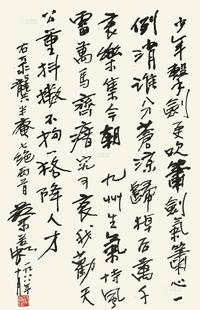 少年擊劍更吹簫劍氣簫心一
例消誰分蒼涼歸棹后萬千
哀樂集今朝 九州生氣恃風
雷萬馬齊瘖究可哀我勸天
公重抖擻不拘一格降人才
右录龔定庵七绝两首